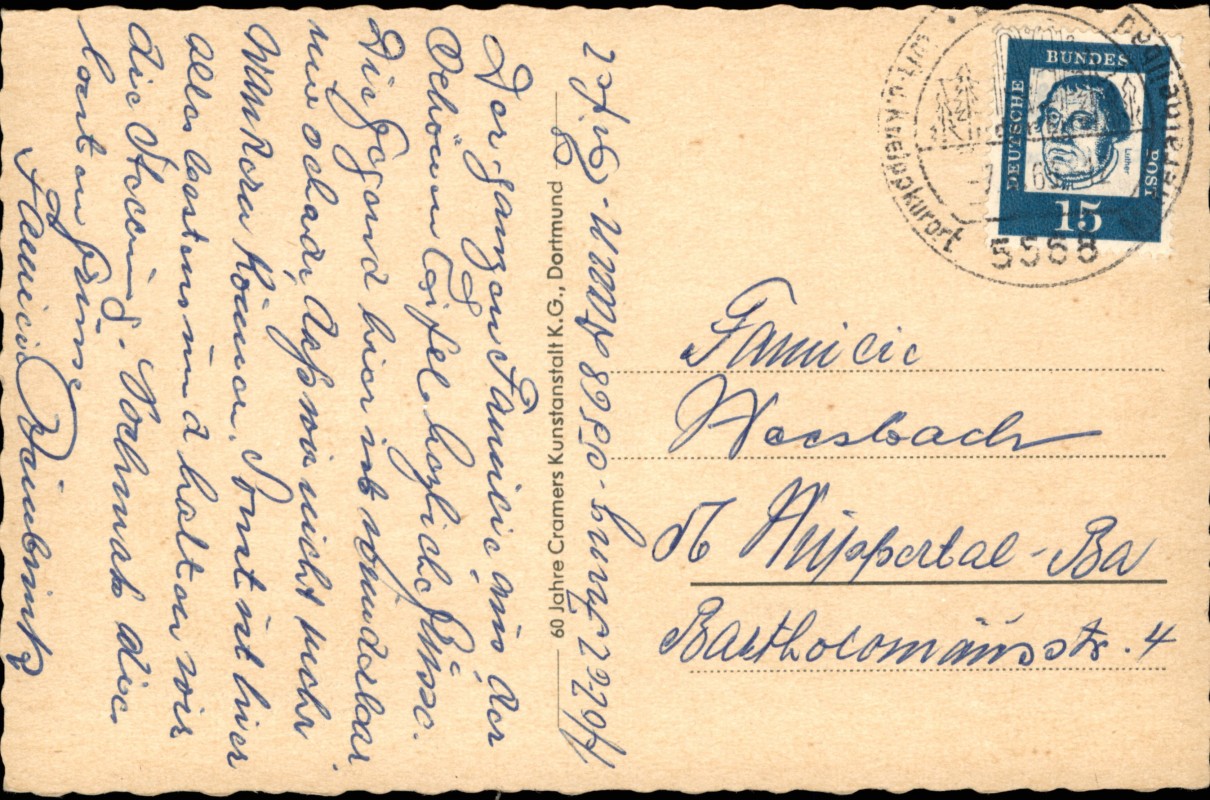 Der ganzen Familie aus der
schönen Eifel herzliche Grüsse.
Die Gegend hier ist wunderbar
nur schade, daß wir nicht mehr
wandern können. Sonst ist hier
alles bestens und halten wir
die Stellung. Nochmals die
besten Grüsse
Familie
60 Jahre Cramers Kunstanstalt K.G., Dortmund
BUNDES
DEUTSCHE
POST
Luther
15
Kneippkurort
5568
Familie
Wuppertal-Ba
Bartholomäusstr. 4